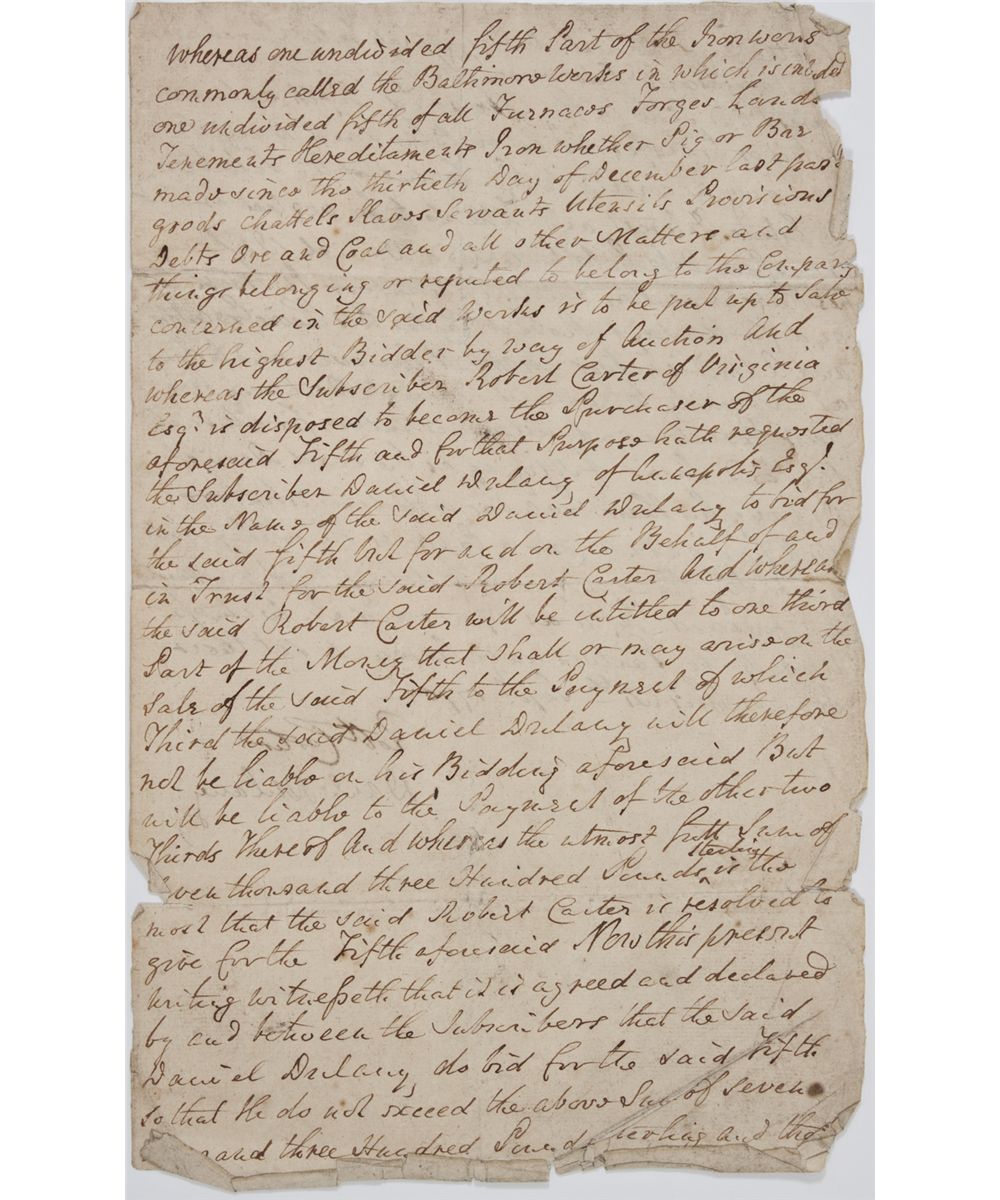 Whereas one undivided fifth Part of the Iron works
commonly called the Baltimore Works in which is included
one undivided fifth of all Furnaces Forges Lands
Tenements Hereditaments Iron whether Pig or Bar
made since the thirtieth Day of December last past
goods chattels Slaves Servants Utensils Provisions
Debts Ore and Coal and all other Matters and
things belonging or reputed to belong to the Company
concerned in the said Works is to be put up to Sale
to the highest Bidder by way of Auction And
whereas the Subscriber Robert Carter of Virginia
Esqr. is disposed to become the Purchaser of the
aforesaid Fifth and for that Purpose hath requested
the Subscriber Daniel Dulany of Annapolis Esqr.
in the Name of the said Daniel Dulany to bid for
the said fifth but for and on the Behalf of and
in Trust for the said Robert Carter And whereas
the said Robert Carter will be intitled to one third
Part of the Money that shall or may arise on the
Sale of the said Fifth to the Payment of which
Third the said Daniel Dulany will therefore
not be liable on his Bidding aforesaid But
will be liable to the Payment of the other two
Thirds thereof And whereas the utmost full Sum of
even thousand three Hundred Pounds sterling is the
most that the said Robert Carter is resolved to
give for the Fifth aforesaid Now this present
writing witnesseth that it is agreed and declared
by and between the Subscribers that the said
Daniel Dulany do bid for the said Fifth
so that He do not exceed the above Sum of seven
and three Hundred Pounds sterling and the